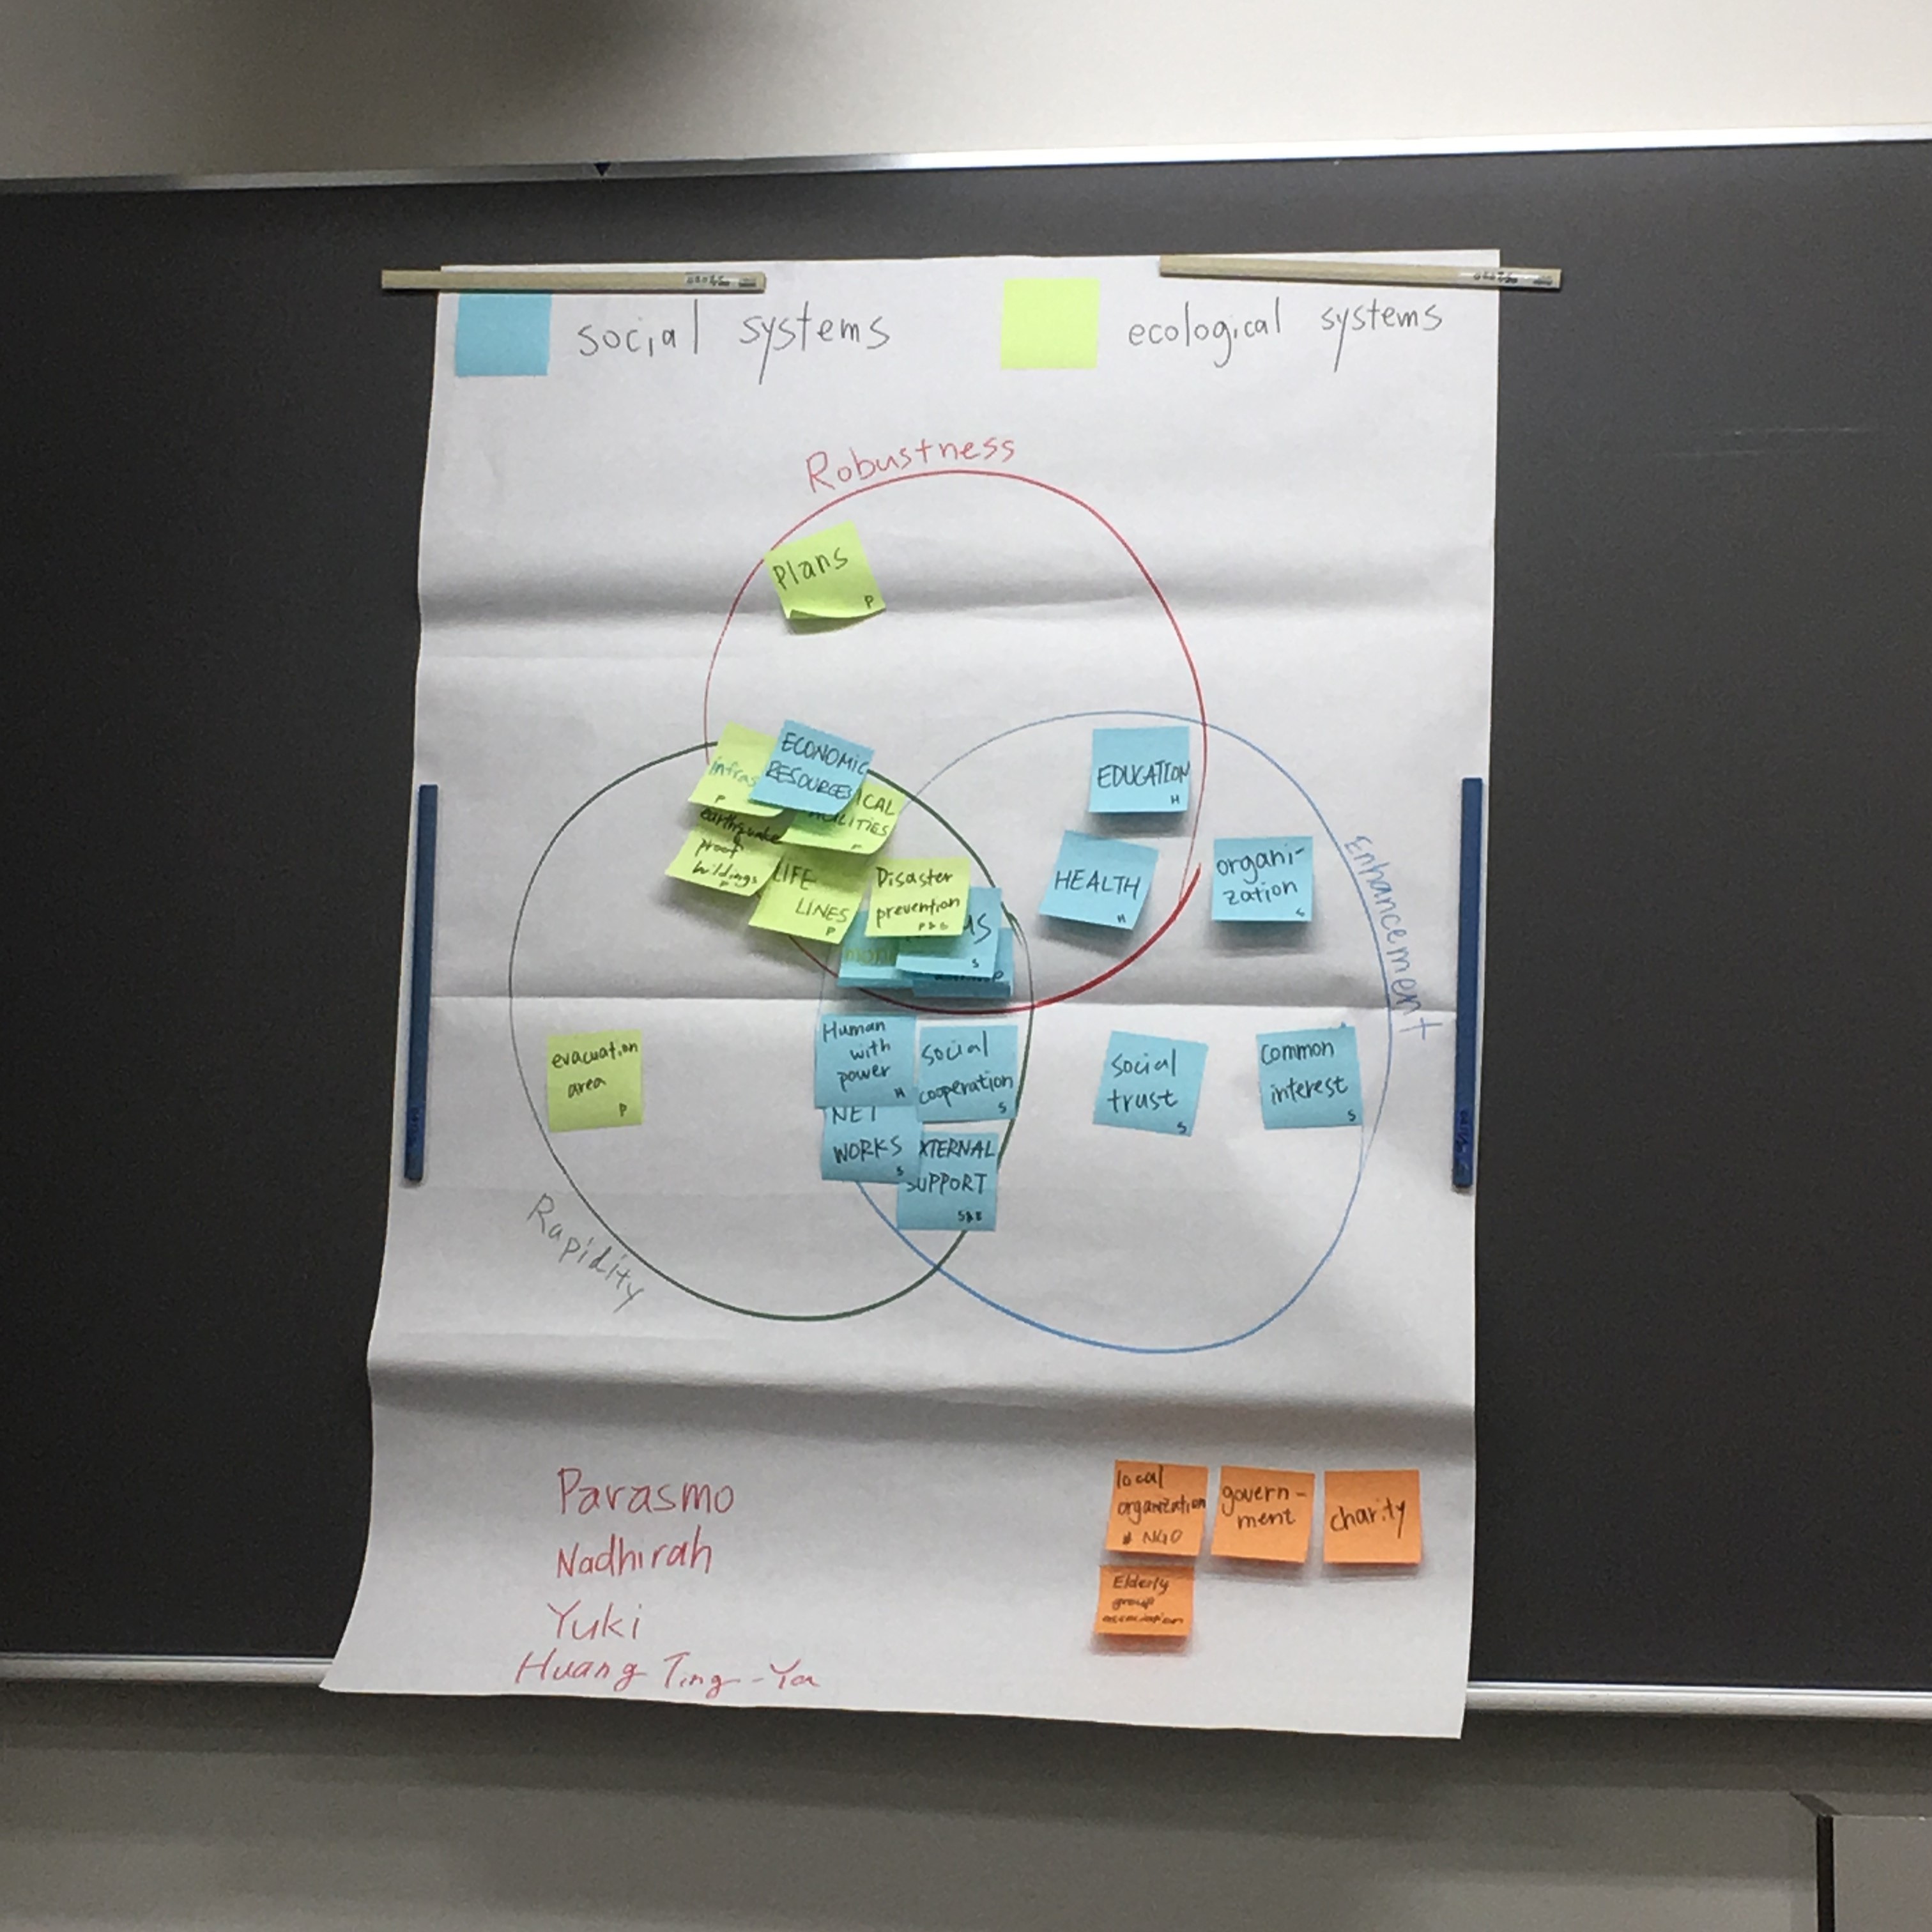 social systems
ecological systems
Robustness
Plans
P
infras
P
ECONOMIC
RESOURCES
ICAL
ILITIES
P
earthquake
proof
buildings
P
LIFE
LINES
P
Disaster
prevention
P&E
US
S
EDUCATION
H
HEALTH
H
organi-
zation
S
Enhancement
evacuation
area
P
Human
with
power
H
social
cooperation
S
NET
WORKS
S
XTERNAL
SUPPORT
S&E
social
trust
S
common
interest
S
Rapidity
Parasmo
Nadhirah
Yuki
Huang Ting-Ya
local
organization
& NGO
govern-
ment
charity
Elderly
group
association